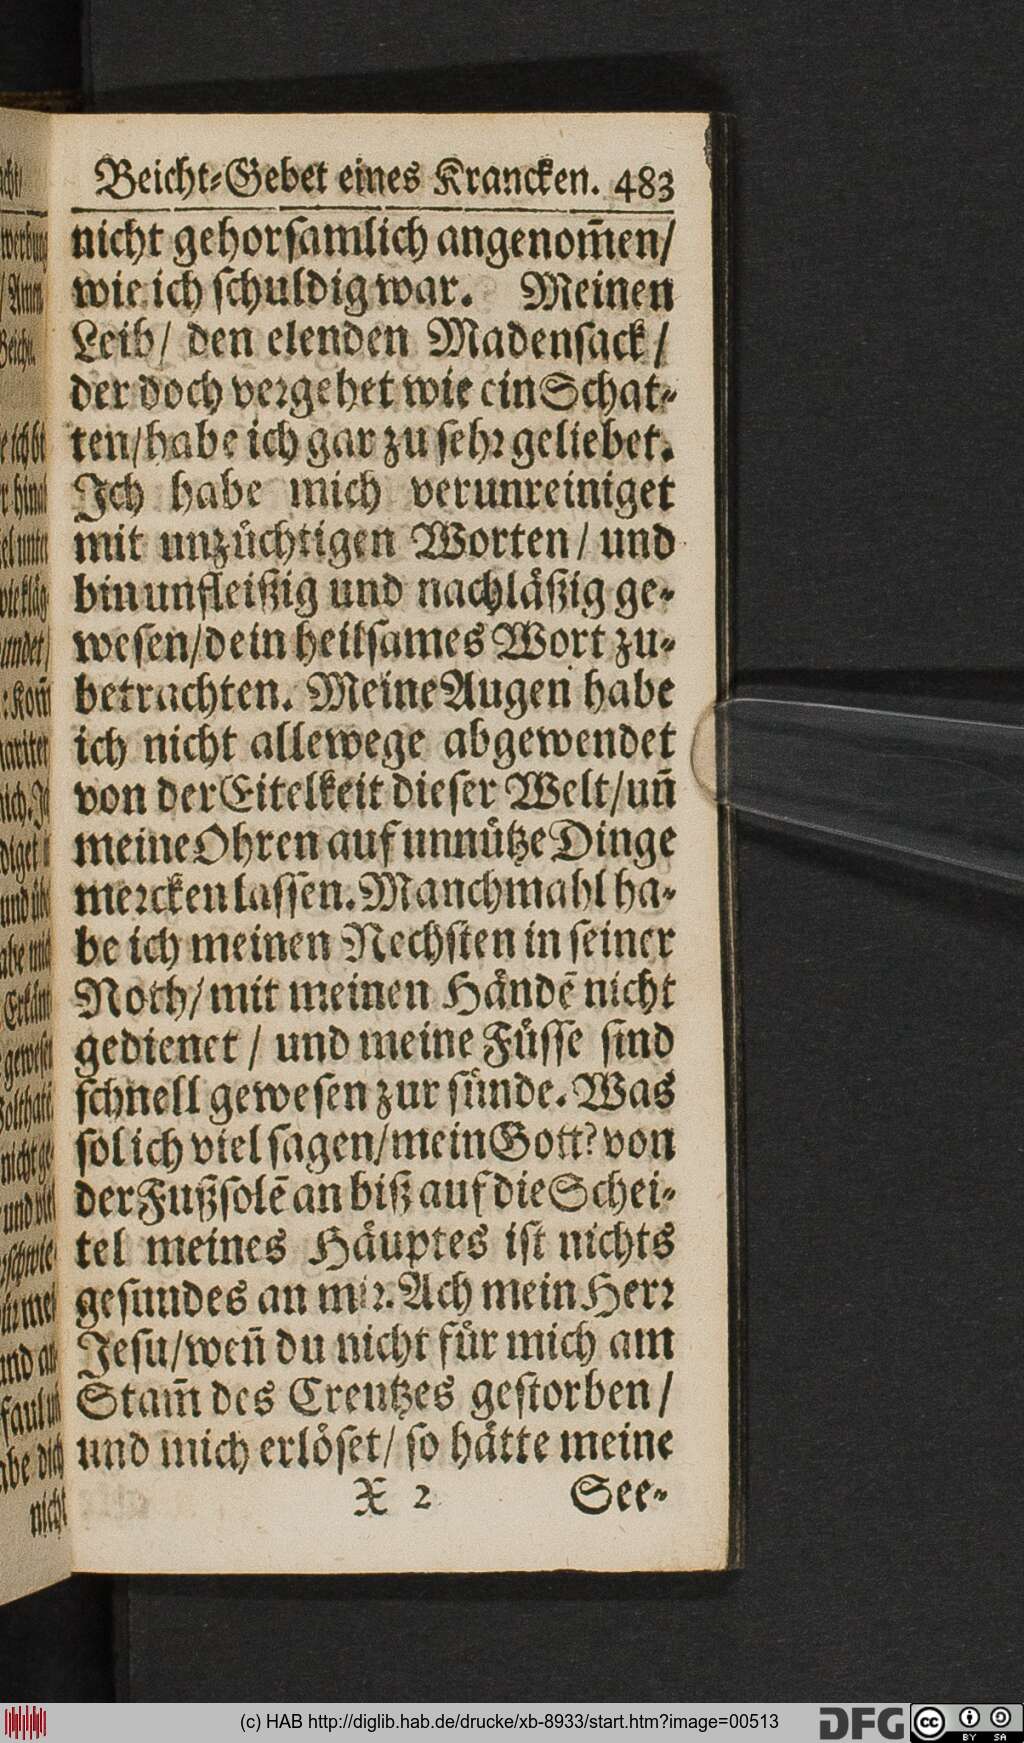 Beicht-Gebet eines Krancken. 483
nicht gehorsamlich angenom̃en/
wie ich schuldig war. Meinen
Leib/ den elenden Madensack/
der doch vergehet wie ein Schat-
ten/habe ich gar zu sehr geliebet.
Ich habe mich verunreiniget
mit unzüchtigen Worten/ und
bin unfleißig und nachläßig ge-
wesen/dein heilsames Wort zu-
betrachten. Meine Augen habe
ich nicht allewege abgewendet
von der Eitelkeit dieser Welt/un̄
meine Ohren auf unnütze Dinge
mercken lassen. Manchmahl ha-
be ich meinen Nechsten in seiner
Noth/mit meinen Händē nicht
gedienet / und meine Füsse sind
schnell gewesen zur sünde. Was
sol ich viel sagen/mein Gott? von
der Fußsolē an biß auf die Schei-
tel meines Häuptes ist nichts
gesundes an mir. Ach mein Herr
Jesu/wen̄ du nicht für mich am
Stam̃ des Creutzes gestorben/
und mich erlöset/ so hätte meine
X 2 See-
nicht
(c) HAB http://diglib.hab.de/drucke/xb-8933/start.htm?image=00513
DFG cc BY SA